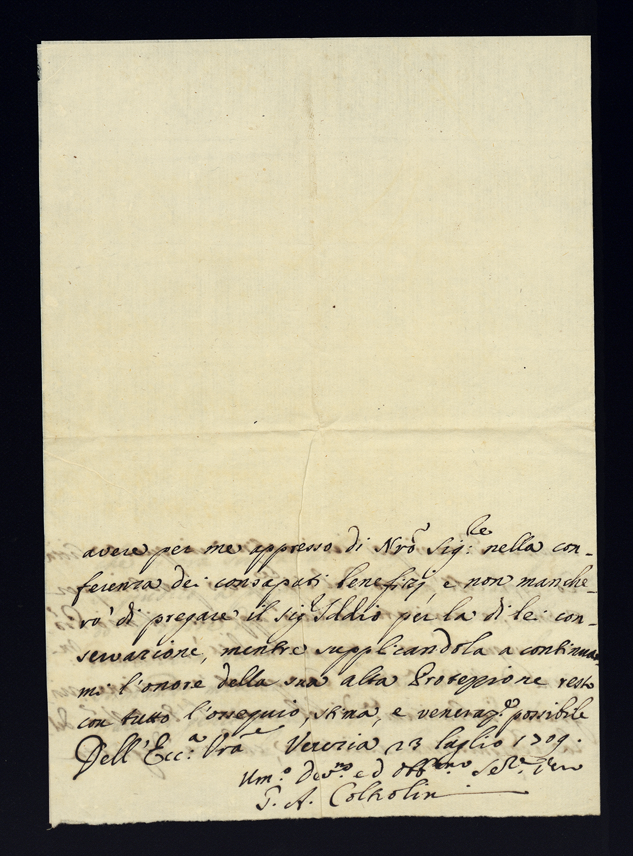 avere per me appresso di Nrō Sig:re nella con-
ferenza dei consaputi benefizij, e non manche-
rò di pregare il Sig.r Iddio per la di lei con-
servazione, mentre supplicandola a continuar
mi l'onore della sua alta Protezzione resto
con tutto l'ossequio, stima, e veneraz:e possibile
Dell'Ecc:a Vrā Venezia 23 luglio 1709.
Um:o Dev:mo ed Obb:mo Se:re Vero